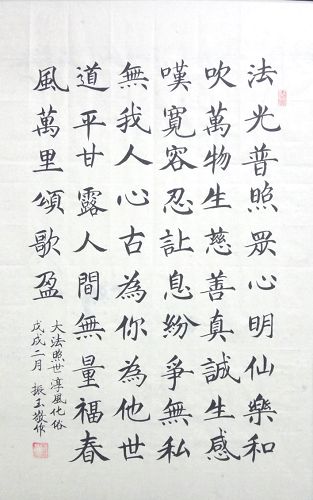 法光普照眾心明仙樂和
吹萬物生慈善真誠生感
嘆寬容忍让息紛爭無私
無我人心古為你為他世
道平甘露人間無量福春
風萬里頌歌盈
大法照世淳風化俗
戊戌二月 振玉敬作